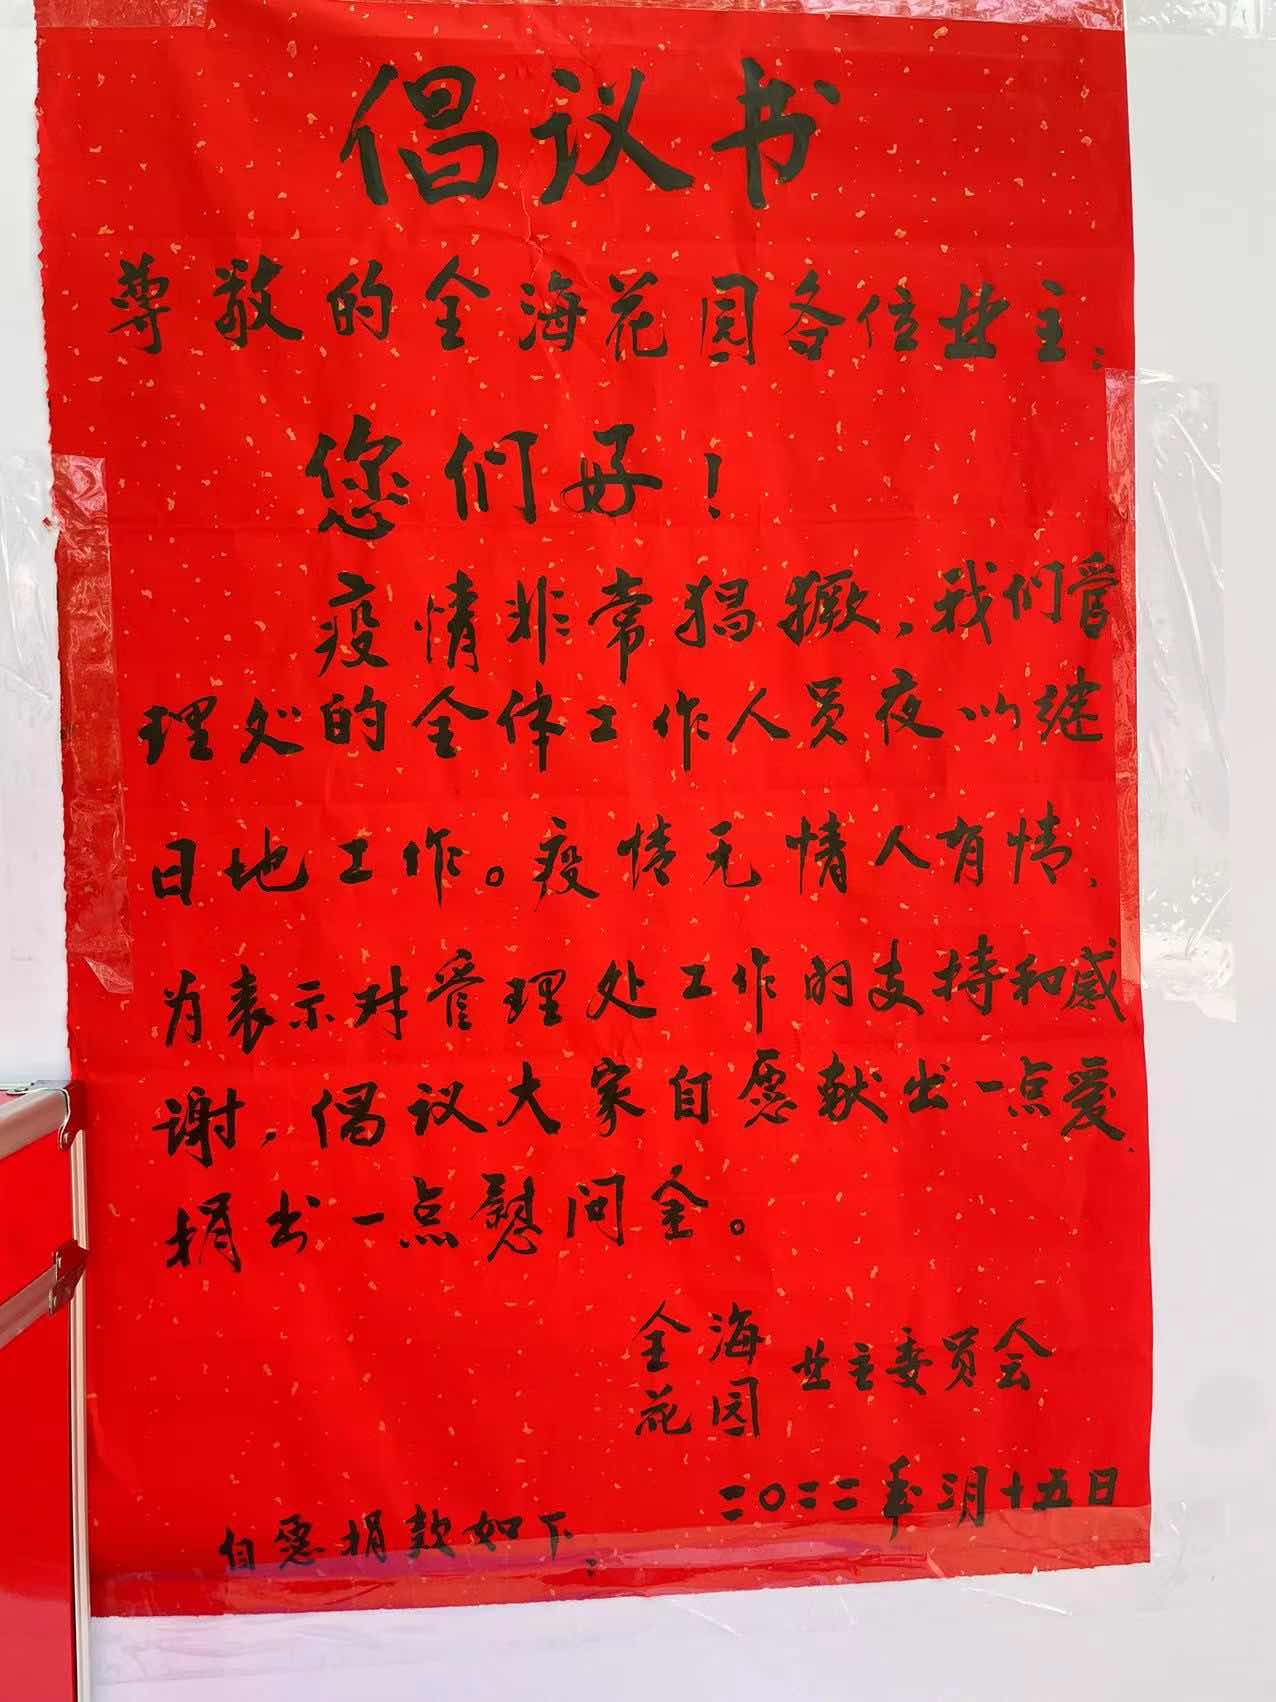 倡议书
尊敬的全海花园各位业主：
您们好！
疫情非常猖獗，我们管
理处的全体工作人员夜以继
日地工作。疫情无情人有情、
为表示对管理处工作的支持和感
谢，倡议大家自愿献出一点爱、
捐出一点慰问金。
全海花园 业主委员会
二〇二二年三月十五日
自愿捐款如下：